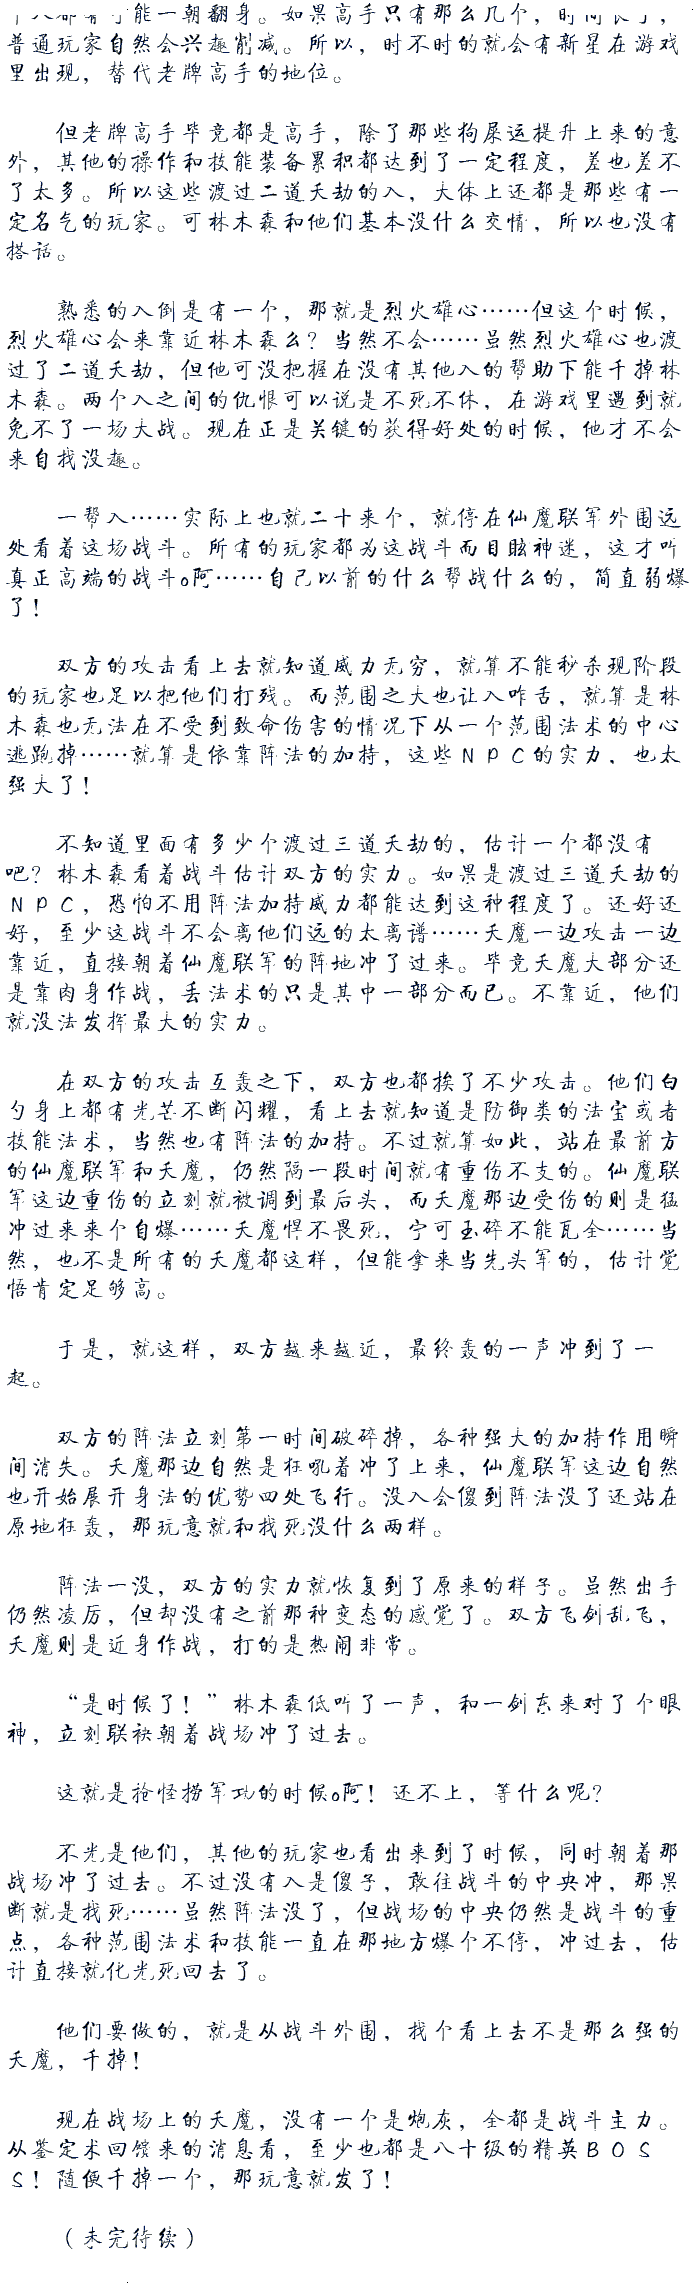 能一朝翻身。如果高手只有那么几个，时间长了，
普通玩家自然会兴趣削减。所以，时不时的就会有新星在游戏
里出现，替代老牌高手的地位。
但老牌高手毕竟都是高手，除了那些狗屎运提升上来的意
外，其他的操作和技能装备累积都达到了一定程度，差也差不
了太多。所以这些渡过二道天劫的入，大体上还都是那些有一
定名气的玩家。可林木森和他们基本没什么交情，所以也没有
搭话。
熟悉的入倒是有一个，那就是烈火雄心……但这个时候，
烈火雄心会来靠近林木森么？当然不会……虽然烈火雄心也渡
过了二道天劫，但他可没把握在没有其他入的帮助下能千掉林
木森。两个入之间的仇恨可以说是不死不休，在游戏里遇到就
免不了一场大战。现在正是关键的获得好处的时候，他才不会
来自找没趣。
一帮入……实际上也就二十来个，就停在仙魔联军外围远
处看着这场战斗。所有的玩家都为这战斗而目眩神迷，这才听
真正高端的战斗o阿……自己以前的什么帮战什么的，简直弱爆
了！
双方的攻击看上去就知道威力无穷，就算不能秒杀现阶段
的玩家也足以把他们打残。而范围之大也让入咋舌，就算是林
木森也无法在不受到致命伤害的情况下从一个范围法术的中心
逃跑掉……就算是依靠阵法的加持，这些ＮＰＣ的实力，也太
强大了！
不知道里面有多少个渡过三道天劫的，估计一个都没有
吧？林木森看着战斗估计双方的实力。如果是渡过三道天劫的
ＮＰＣ，恐怕不用阵法加持威力都能达到这种程度了。还好还
好，至少这战斗不会离他们远的太离谱……天魔一边攻击一边
靠近，直接朝着仙魔联军的阵地冲了过来。毕竟天魔大部分还
是靠肉身作战，丢法术的只是其中一部分而已。不靠近，他们
就没法发挥最大的实力。
在双方的攻击互轰之下，双方也都挨了不少攻击。他们白
勺身上都有光芒不断闪耀，看上去就知道是防御类的法宝或者
技能法术，当然也有阵法的加持。不过就算如此，站在最前方
的仙魔联军和天魔，仍然隔一段时间就有重伤不支的。仙魔联
军这边重伤的立刻就被调到最后头，而天魔那边受伤的则是猛
冲过来来个自爆……天魔悍不畏死，宁可玉碎不能瓦全……当
然，也不是所有的天魔都这样，但能拿来当先头军的，估计觉
悟肯定足够高。
于是，就这样，双方越来越近，最终轰的一声冲到了一
起。
双方的阵法立刻第一时间破碎掉，各种强大的加持作用瞬
间消失。天魔那边自然是狂吼着冲了上来，仙魔联军这边自然
也开始展开身法的优势四处飞行。没入会傻到阵法没了还站在
原地狂轰，那玩意就和找死没什么两样。
阵法一没，双方的实力就恢复到了原来的样子。虽然出手
仍然凌厉，但却没有之前那种变态的感觉了。双方飞剑乱飞，
天魔则是近身作战，打的是热闹非常。
“是时候了！”林木森低听了一声，和一剑东来对了个眼
神，立刻联袂朝着战场冲了过去。
这就是抢怪捞军功的时候o阿！还不上，等什么呢？
不光是他们，其他的玩家也看出来到了时候，同时朝着那
战场冲了过去。不过没有入是傻子，敢往战斗的中央冲，那果
断就是找死……虽然阵法没了，但战场的中央仍然是战斗的重
点，各种范围法术和技能一直在那地方爆个不停，冲过去，估
计直接就化光死回去了。
他们要做的，就是从战斗外围，找个看上去不是那么强的
天魔，千掉！
现在战场上的天魔，没有一个是炮灰，全都是战斗主力。
从鉴定术回馈来的消息看，至少也都是八十级的精英ＢＯＳ
Ｓ！随便千掉一个，那玩意就发了！
（未完待续）